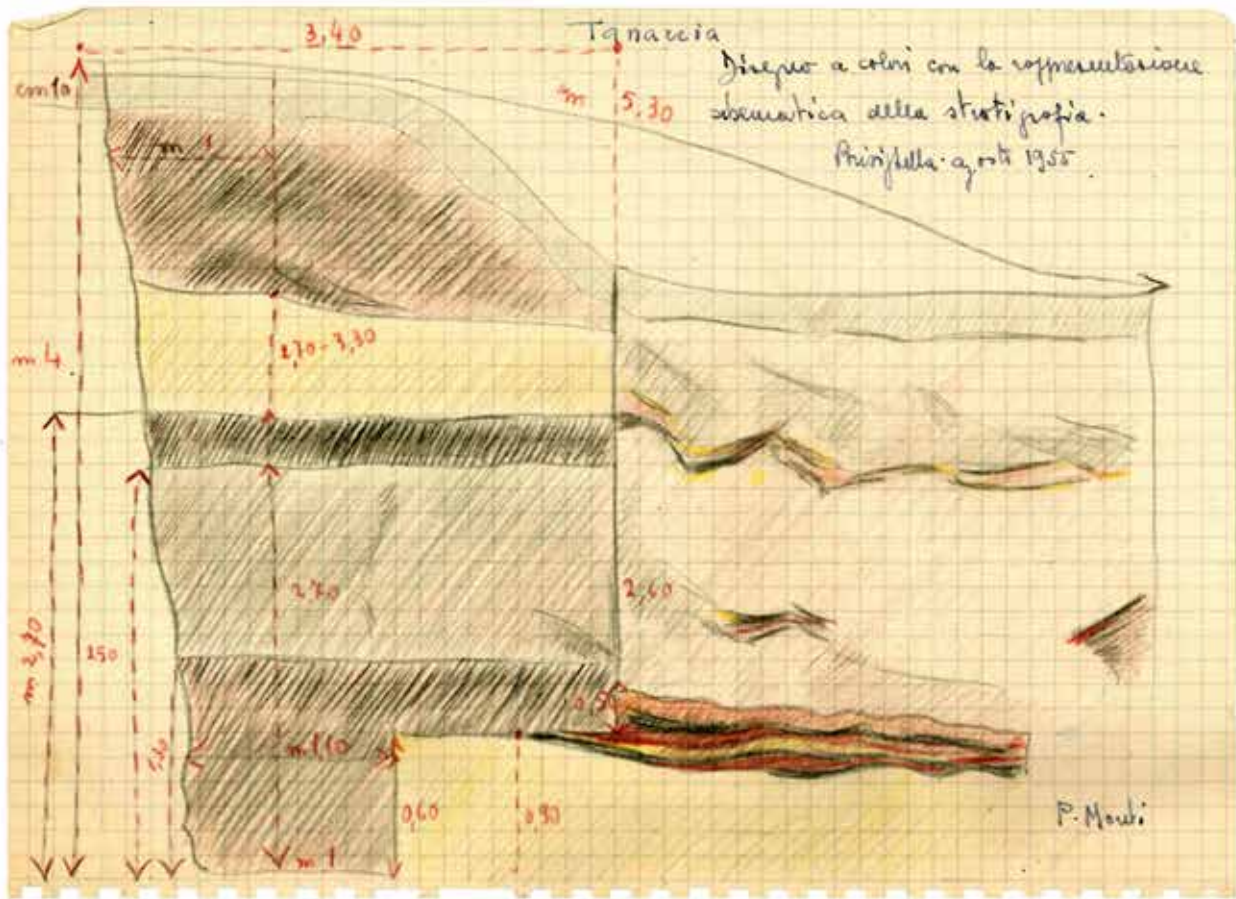 3,40
Tanaccia
Disegno a colori con la rappresentazione
schematica della stratigrafia.
Brisighella - agosto 1955
cm 10
m 5,30
m 1
m 4
2,70-3,30
m 2,70
150
2,70
2,60
0,50
m 1,10
0,60
0,90
m 1
P. Monti